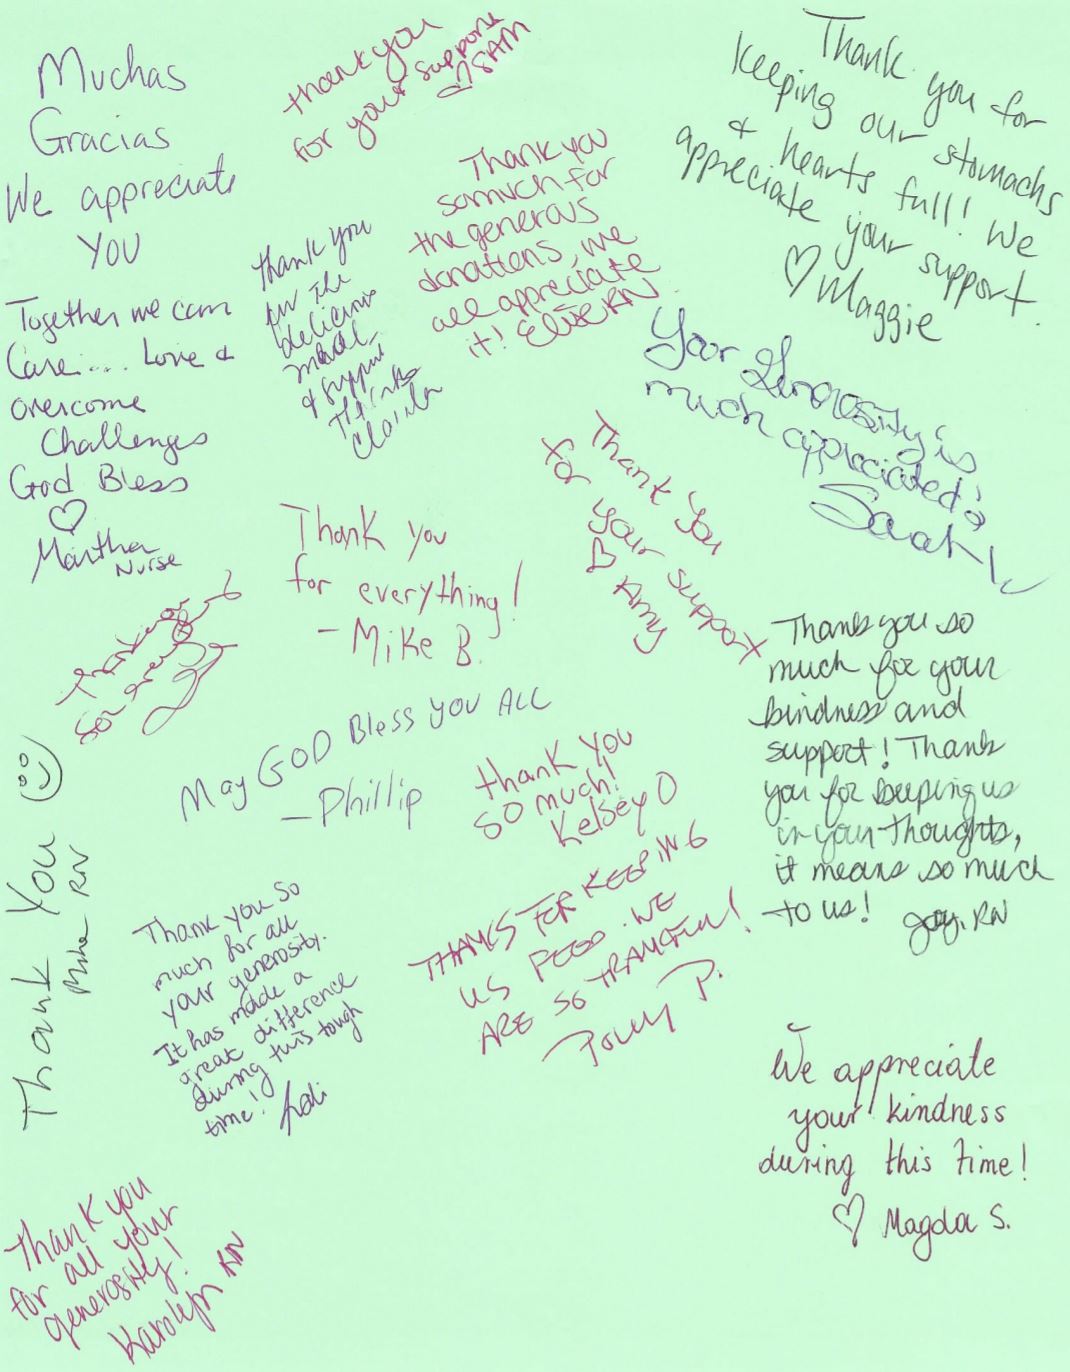 Muchas
Gracias
We appreciate
YOU
Together we can
Care.... Love &
overcome
Challenges
God Bless
♡
Martha
Nurse
thank you
for your support
♡ SAM
Thank you for
keeping our stomachs
& hearts full! We
appreciate your support.
♡ Maggie
Thank you
so much for
the generous
donations, we
all appreciate
it! Elise RN
thank you
for the
delicious
meal
& support
Your Generosity is
much appreciated!
Sarah
Thank you
for your support
♡ Amy
Thank you
for everything!
- Mike B.
Thank you so
much for your
kindness and
support! Thank
you for keeping us
in your thoughts,
it means so much
to us! Joy, RN
May GOD Bless you ALL
- Phillip
thank you
so much!
Kelsey O
Thank You ☺
RN
THANKS FOR KEEPING
US FEED. WE
ARE SO
P.
Thank you so
much for all
your generosity.
It has made a
great difference
during this tough
time!
We appreciate
your kindness
during this time!
♡ Magda S.
Thank you
for all your
generosity!
Karolyn RN